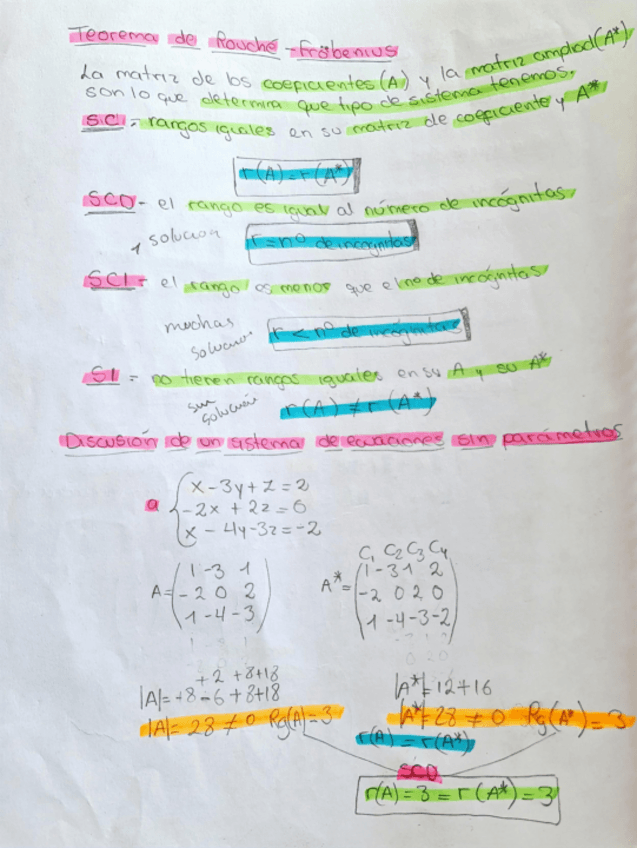 Teorema de Rouché-Fröbenius
La matriz de los coeficientes (A) y la matriz ampliad(A*)
son lo que determina que tipo de sistema tenemos.
SC - rangos iguales en su matriz de coeficiente y A*
r(A) = r(A*)
SCD - el rango es igual al número de incógnitas
1 solución r = nº de incognitas
SCI - el rango es menos que el nº de incógnitas
muchas
solucio. r < nº de incógnitas
SI = no tienen rangos iguales en su A y su A*
sin
solución r(A) ≠ r(A*)
Discusión de un sistema de ecuaciones sin parámetros
a { x - 3y + z = 2
-2x + 2z = 0
x - 4y - 3z = -2
C1 C2 C3 C4
A = ( 1 -3 1 ) A* = ( 1 -3 1 2 )
( -2 0 2 ) ( -2 0 2 0 )
( 1 -4 -3 ) ( 1 -4 -3 -2 )
+2 +8+18
|A| = +8 - 6 + 8+18 |A*| = 12+16
|A| = 28 ≠ 0 Rg(A) = 3 |A*| = 28 ≠ 0 Rg(A*) = 3
r(A) = r(A*)
SCD
r(A) = 3 = r(A*) = 3